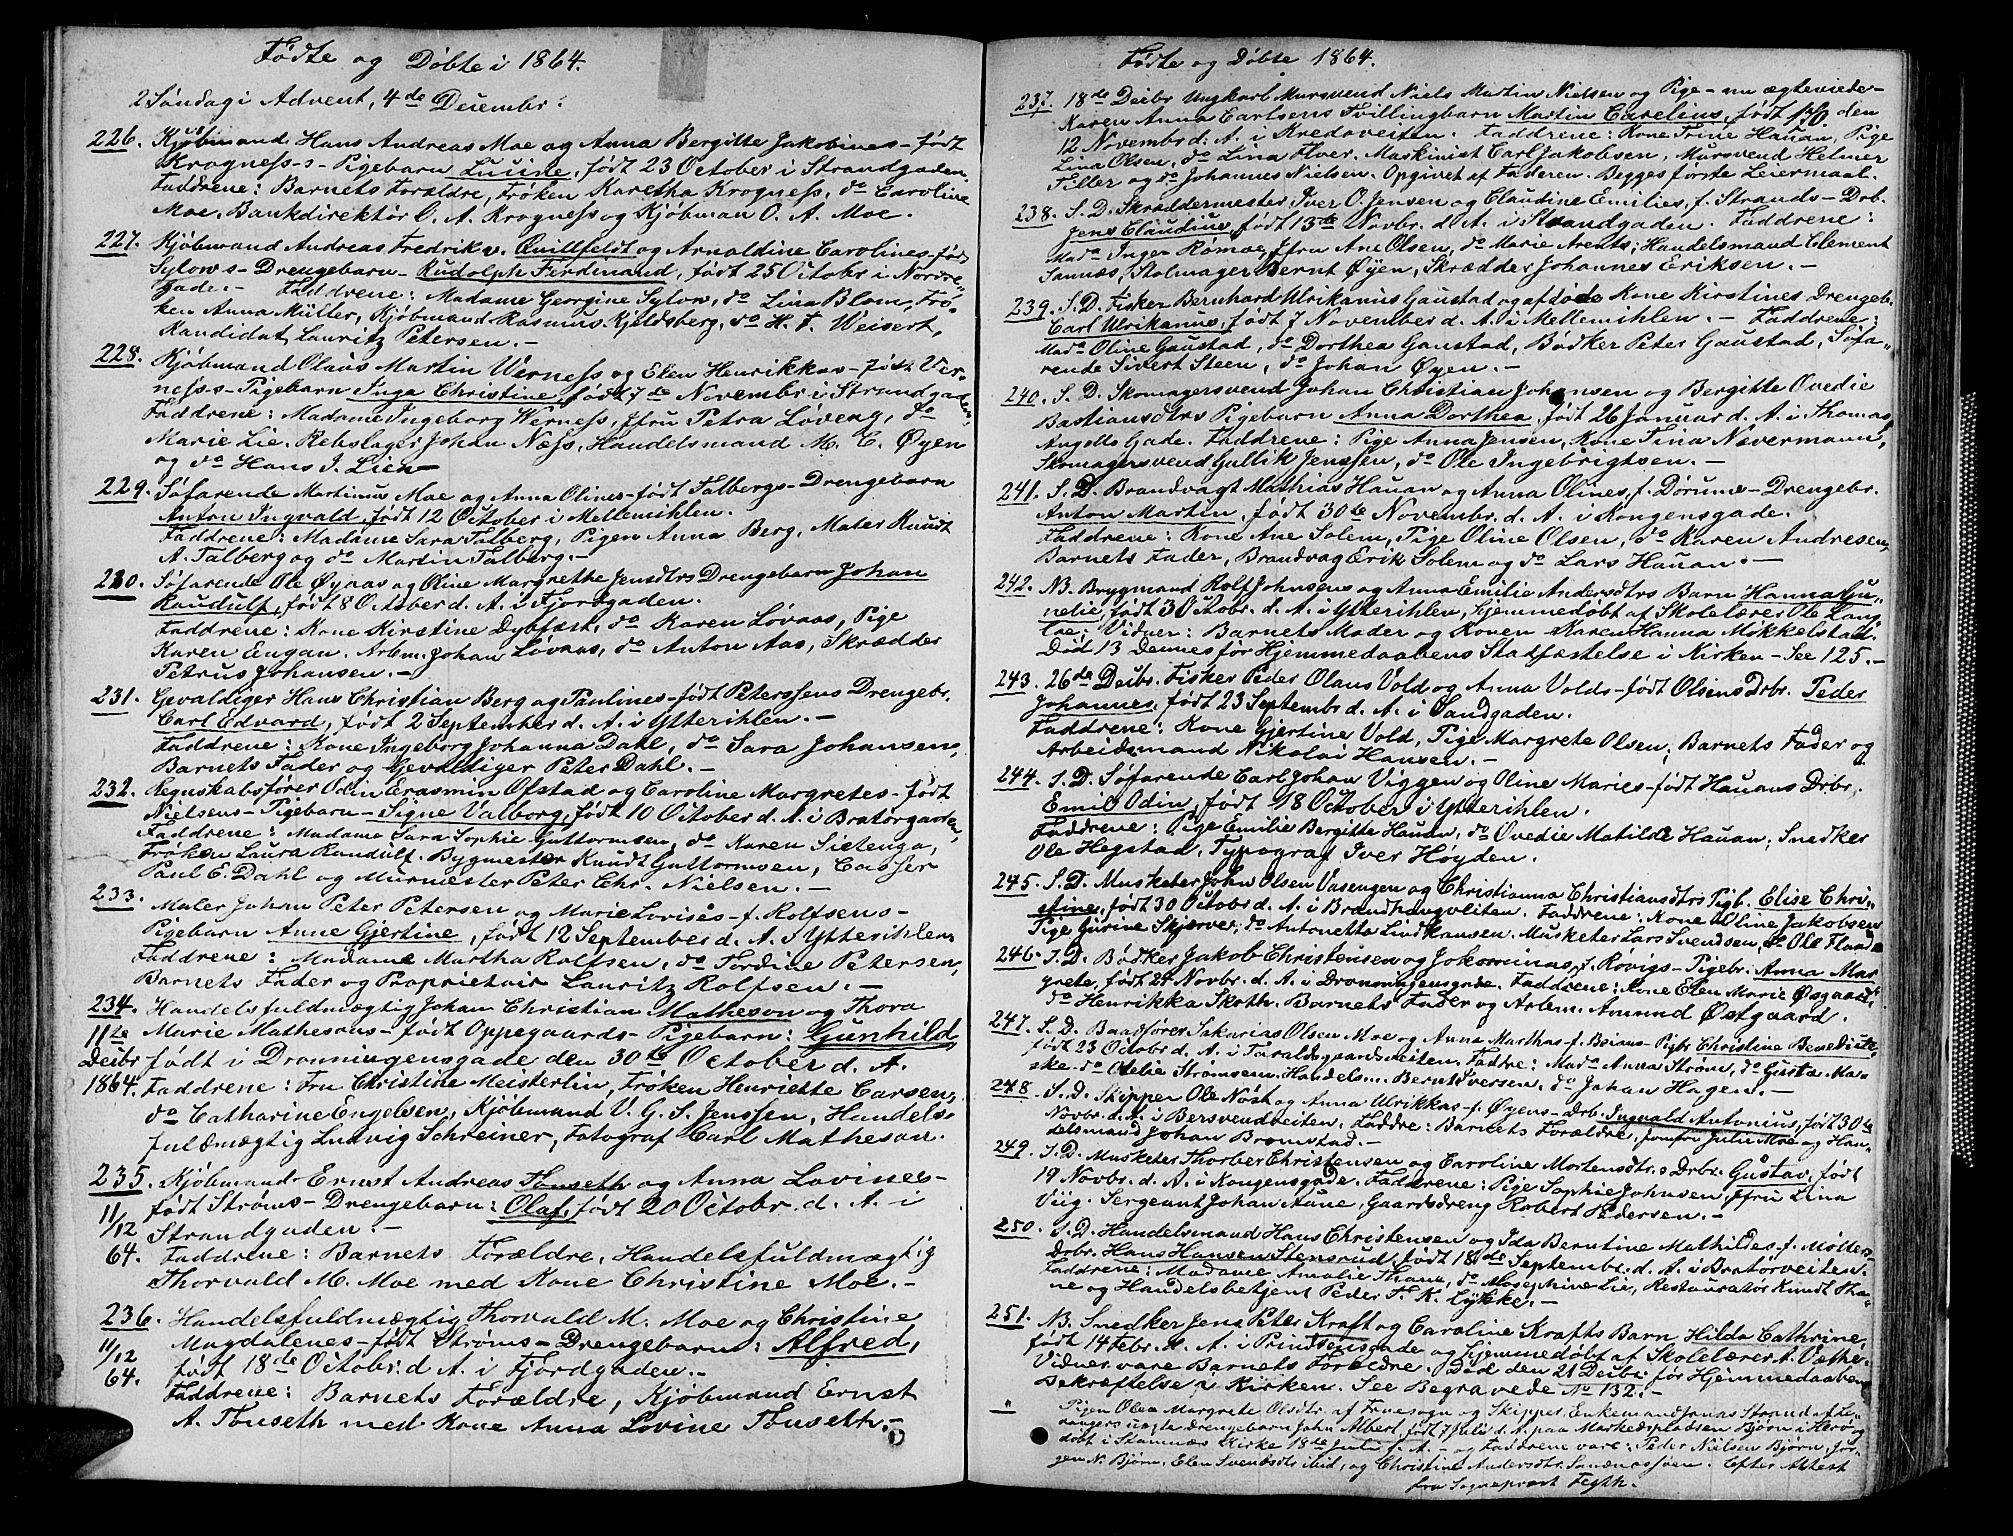 Fødte og Døbte i 1864.
2 Søndag i Advent, 4de Decembr:
226. Kjøbmand Hans Andreas Moe og Anna Bergitte Jakobines – født
Krogness-s – Pigebarn Lucide, født 23 October i Strandgaden
Faddrene: Barnets Forældre, Frøken Karetha Krogness, do Caroline
Moe, Bankdirektør C. A. Krogness og Kjøbman O. A. Moe.
227. Kjøbmand Andreas Fredrik v. Qvillfeldt og Arnoldine Carolines – født
Sylows – Drengebarn – Rudolph Ferdinand, født 25 Octobr i Nordre-
gade. – Faddrene: Madame Georgine Sylow, do Lina Blom, Frø-
ken Anna Müller, Kjøbmand Rasmus Kjeldsberg, do H. F. Weisert,
Kandidat Lauritz Petersen. –
228. Kjøbmand Olaus Martin Werness og Elen Henrikkas – født Ver-
ness-s – Pigebarn Inga Christine, født 7de Novembr i Strandgaden,
Faddrene: Madame Ingeborg Werness, Jfru Petra Løveng, do
Marie Lie. Rebslager Johan Næss, Handelsmand M. C. Øyen
og do Hans J. Lien –
229. Søfarende Martinus Moe og Anna Olines – født Talbergs – Drengebarn
Anton Ingvald, født 12 October i Mellemihlen.
Faddrene: Madame Sara Talberg, Pigen Anna Berg, Maler Knudt
A. Talberg og do Martin Talberg. –
230. Søfarende Ole Øynas og Oline Margrethe Jensdtrs Drengebarn Johan
Raudulf, født 8 October d. A. i Fjordgaden.
Faddrene: Kone Kirstine Dybfæst, do Karen Løvaas, Pige
Karen Engan. Arbm. Johan Løvaas, do Anton Aas, Skrædder
Petrus Johansen. –
231. Gevaldiger Hans Christian Berg og Paulines – født Peterssens Drengebr.
Carl Edvard, født 2 September d. A. i Ytterihlen. –
Faddrene: Kone Ingeborg Johanna Dahl, do Sara Johansen,
Barnets Fader og Gevaldiger Peter Dahl. –
232. Regnskabsfører Oden Erasmin Ofstad og Caroline Margretes – født
Nielsens – Pigebarn – Signe Valborg, født 10 October d. A. i Bratørgaden,
Faddrene: Madame Sara Sophie Guttormsen, do Karen Sietenga,
Frøken Laura Randulf. Bygmester Knudt Guttormsen, Casser
Paul E. Dahl og Murmester Peter Chr. Nielsen. –
233. Maler Johan Peter Petersen og Marie Lovises – f. Rolfsens –
Pigebarn Anne Gjertine, født 12 September d. A. i Ytterihlen
Faddrene: Madame Martha Rolfsen, do Fordine Petersen,
Barnets Fader og Proprietair Lauritz Rolfsen. –
234. Handelsfuldmægtig Johan Christian Matheson og Thora
11te Marie Mathesons – født Oppegaards – Pigebarn: Gunhild,
Decbr født i Dronningensgade den 30te October d. A.
1864. Faddrene: Fru Christine Meisterlin, Frøken Henriette Carsen,
do Catharine Engelsen, Kjøbmand V. G. S. Jenssen, Handels-
fuldmægtig Ludvig Schreiner, Fotograf Carl Mathesen.
235. Kjøbmand Ernst Andreas Tønseth og Anna Lovines –
11/12 født Strøms – Drengebarn: Olaf, født 20 Octobr. d. A. i
Strandgaden. –
64. Faddrene: Barnets Forældre, Handelsfuldmægtig
Thorvald M. Moe med Kone Christine Moe. –
236. Handelsfuldmægtig Thorvald M. Moe og Christine
11/12 Magdalenes – født Strøms – Drengebarn: Alfred,
64. født 18de Octobr. d. A. i Fjordgaden. –
Faddrene: Barnets Forældre, Kjøbmand Ernst
A. Tønseth med Kone Anna Lovine Tønseth. –
Fødte og Døbte 1864.
237. 18de Decbr Ungkarl Mursvend Niels Martin Nielsen og Pige – nu ægteviede –
Karen Anna Carlsens Tvillingbarn Martin Carelius, født den
12 Novembr d. A. i Kredoveiten. Faddrene: Kone Trine Hauan, Pige
Lina Olsen, do Lina Flver. Maskinist Carl Jakobsen, Mursvend Helmer
Tiller og do Johannes Nielsen. Opgivet af Faderen. Begges første Leiermaal.
238. S. D. Skræddermester Iver O. Jensen og Claudine Emilies, f. Strands – Drb.
Jens Claudius, født 13de Novbr. d. A. i Strandgaden. Faddrene:
Mad. Inger Rømoe, Jfru Ane Olsen, do Marie Arents; Handelsmand Clement
Sannæs, Stolmager Bernt Øyen, Skrædder Johannes Eriksen. –
239. S. D. Fisker Bernhard Ulrikanus Gaustad og afdøde Kone Kirstines Drengeb.
Carl Ulrikanus, født 7 November d. A. i Mellemihlen. – Faddrene:
Mad. Oline Gaustad, do Dorthea Gaustad, Bødker Peter Gaustad, Søfa-
rende Sivert Steen, do Johan Øyen. –
240. S. D. Skomagersvend Johan Christian Johansen og Bergitte Ovedie
Bastiansdtrs Pigebarn Anna Dorthea, født 26 Januar d. A. i Thomas
Angells Gade. Faddrene: Pige Anna Jensen, Kone Tina Nævermann,
Skomagersvend Gullik Jenssen, do Ole Ingebrigtsen. –
241. S. D. Brandvagt Mathias Hauan og Anna Olines, f. Dørums – Drengebr.
Anton Martin, født 30te Novembr. d. A. i Kongensgade.
Faddrene: Kone Ane Solem, Pige Oline Olsen, do Karen Andresen,
Barnets Fader, Brandvag Erik Solem og do Lars Hauan. –
242. NB. Brygmand Rolf Johnsens og Anna Emilie Andersdtrs Barn Hanna Gu-
nelie, født 3 Octobr. d. A. i Ytterihlen, hjemmedøbt af Skolelærer Ole Lang-
loe; Vidner: Barnets Moder og Konen Karen Hanna Mokkelstad.
Død 13 Dennes før Hjemmedaabens Stadfæstelse i Kirken – See 125. –
243. 26de Decbr. Fisker Peder Olaus Vold og Anna Volds – født Olsins Drbr. Peder
Johannes, født 23 Septembr d. A. i Sandgaden.
Faddrene: Kone Gjertine Vold, Pige Margrete Olsen; Barnets Fader og
Arbeidsmand Nikolai Hansen. –
244. S. D. Søfarende Carl Johan Viggen og Oline Maries – født Hauans Drbr.
Emil Odin, født 18 October i Ytterihlen.
Faddrene: Pige Emilie Bergitte Hauan, do Ovedie Matilde Hauan; Snedker
Ole Hegstad, Typograf Iver Høyden.
245. S. D. Musketer John Olsen Vasengen og Christianna Christiansdtrs Pigb. Elise Chri-
stine, født 30 Octobr d. A. i Brandhaugveiten. Faddrene: Kone Oline Jakobsen
Pige Gurine Skjerve; do Antonetta Lindhansen. Musketer Lars Svendsen, do Ole Flaade
246. S. D. Bødker Jakob Christensen og Jokominas, f. Røvigs – Pigebr. Anna Mar-
grete, født 24 Novbr. d. A. i Dronningensgade. Faddrene: Kone Elen Marie Øsgaard,
do Henrikka Skoth. Barnets Fader og Arbm. Amund Østgaard.
247. S. D. Baadfører Sakarias Olsen Moe og Anna Marthas – f. Bsians – Pigbr Christine Benedikte
født 23 Octobr d. A. i Taraldsgaardsveiten. Faddre: Mad. Anna Strøm, do Gusta Ma-
ske – do Otelie Strømsem. Handelsm. Bernt Iversen, do Johan Hagen. –
248. S. D. Skipper Ole Nøst og Anna Ulrikkas – f. Øyens – Drb. Ingvald Antonius, født 30te
Novbr. d. A. i Bersvendveiten. Faddre: Barnets Forældre, Jomfru Julie Moe og Han-
delsmand Johan Bromstad. –
249. S. D. Musketer Thorber Christensen og Caroline Mortensdtrs Drbr. Gustav, født
19 Novbr. d. A. i Kongensgade. Faddrene: Pige Sophie Johnsen, Jfru Lina
Viig. Sergeant Johan Aune, Gaardsdreng Robert Pedersen. –
250. S. D. Handelsmand Hans Christensen og Ida Berntine Mathildes, f. Møllers
Drbr. Hans Hansen Stensrud, født 18de Septembr. d. A. i Bratørveiten.
Faddrene: Madame Amalie Thane, do Mosephine Lie, Restauratør Knudt Tha-
ne og Handelsbetjent Peder F. K. Lykke. –
251. NB. Snedker Jens Peter Kraft og Caroline Krafts Barn Hilda Cathrine,
født 14 Febr. d. A. i Prindsensgade og hjemmedøbt af Skolelærer A. Væthe.
Vidner vare Barnets Forældre. Død den 21 Decbr. før Hjemmedaaben
Bekræftelse i Kirken. See Begravede No 132. –
" Pigen Olea Margrete Olsdtr. af Fruesogn og Skipper, Enkemand Jonas Strand af Le-
rangers uægte Drengebarn John Albert, født 7 Juli d. A. paa Markedspladsen Bjørn i Herø og
døbt i Stamnæs Kirke 18de Juli d. A. – og Faddrene vare: Peder Nielsen Bjørn, Jør-
gen N. Bjørn, Elen Svendsdtr ibid, og Christine Andersdtr. Efter Attest
fra Sogneprest Fegth.